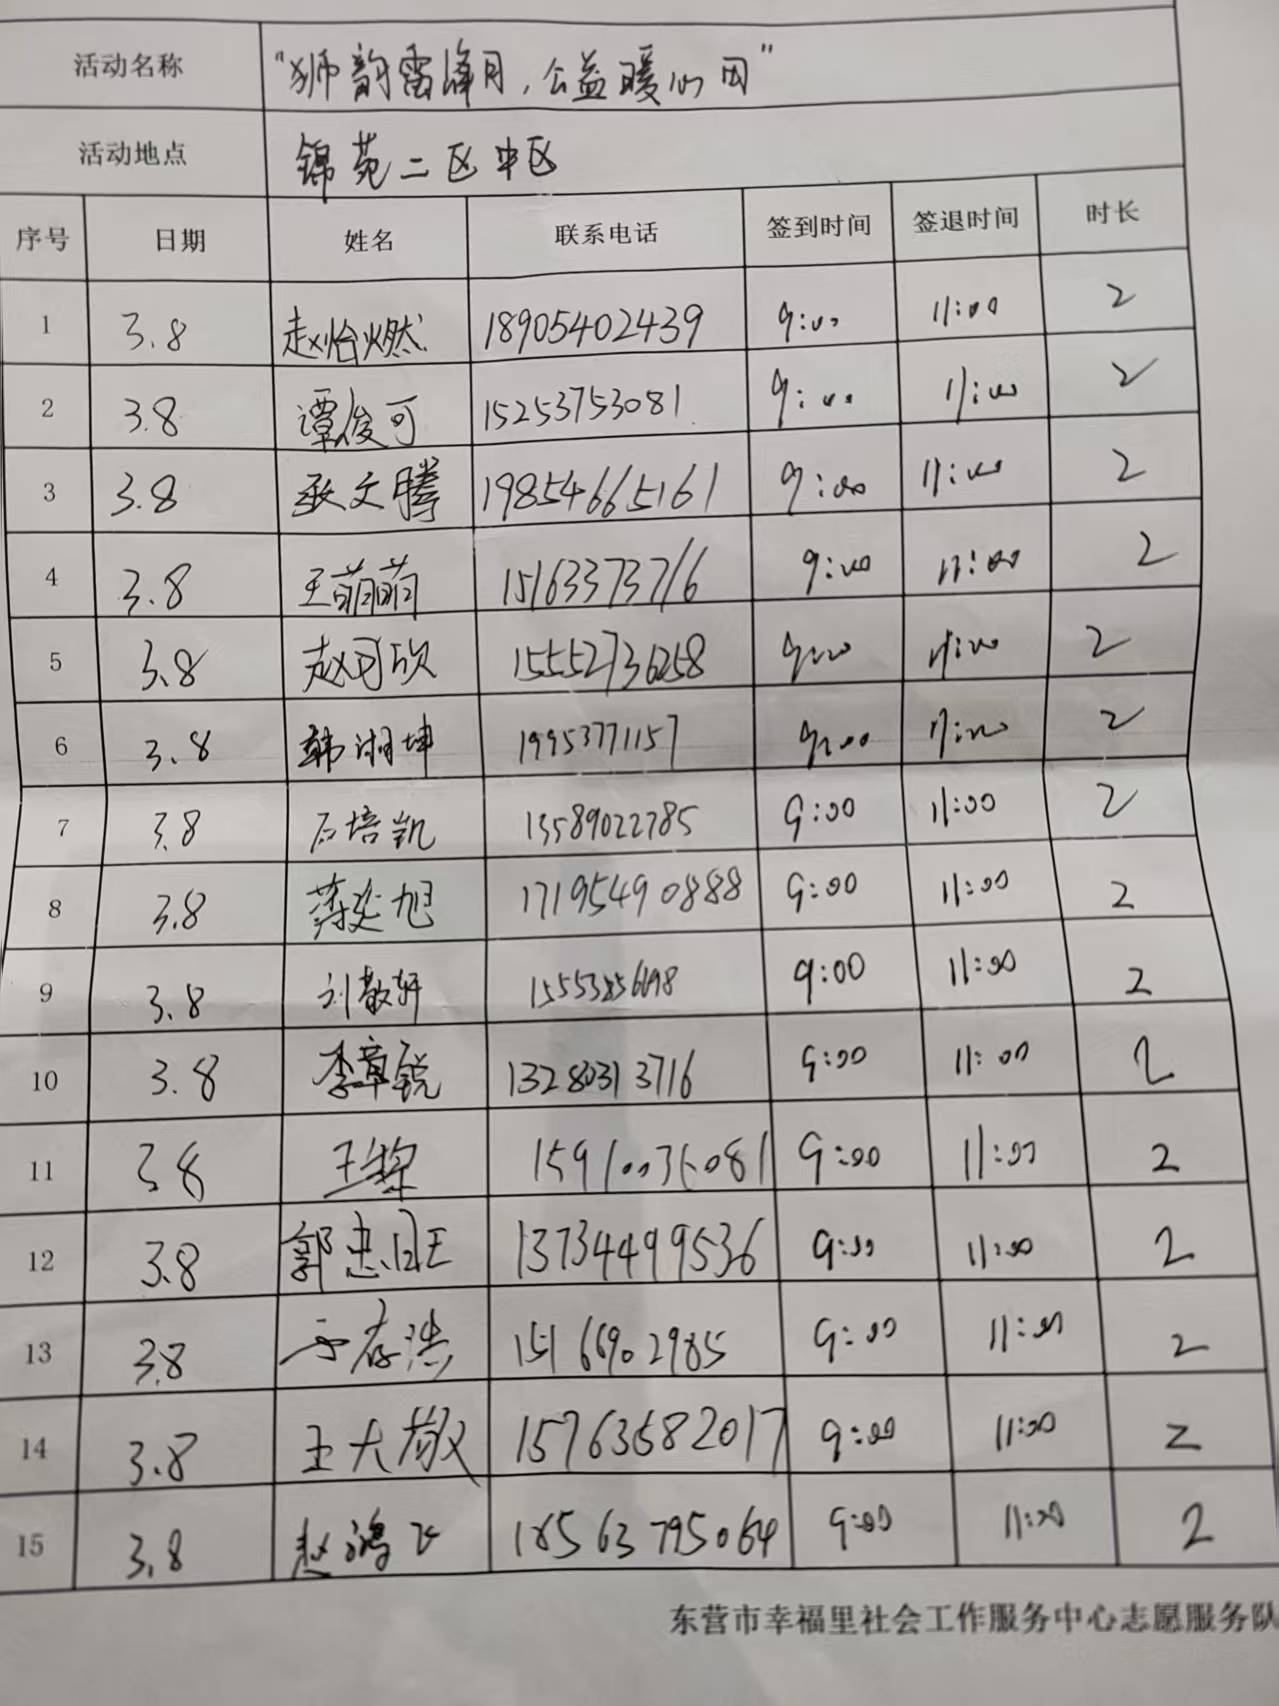 活动名称 "狮韵雷锋月，公益暖心田"
活动地点 锦苑二区中区
序号 日期 姓名 联系电话 签到时间 签退时间 时长
1 3.8 赵怡燃 18905402439 9:00 11:00 2
2 3.8 谭俊可 15253753081 9:00 11:00 2
3 3.8 张文腾 19854665161 9:00 11:00 2
4 3.8 王萌萌 15163373716 9:00 11:00 2
5 3.8 赵可欣 15552736258 9:00 11:00 2
6 3.8 韩湘坤 19953771157 9:00 11:00 2
7 3.8 石培凯 13589022785 9:00 11:00 2
8 3.8 17195490888 9:00 11:00 2
9 3.8 刘敬轩 9:00 11:00 2
10 3.8 李章锐 13280313716 9:00 11:00 2
11 3.8 9:00 11:00 2
12 3.8 13734499536 9:00 11:00 2
13 3.8 于存浩 15166902985 9:00 11:00 2
14 3.8 王大敬 15763582017 9:00 11:00 2
15 3.8 赵鸿飞 18563795064 9:00 11:00 2
东营市幸福里社会工作服务中心志愿服务队